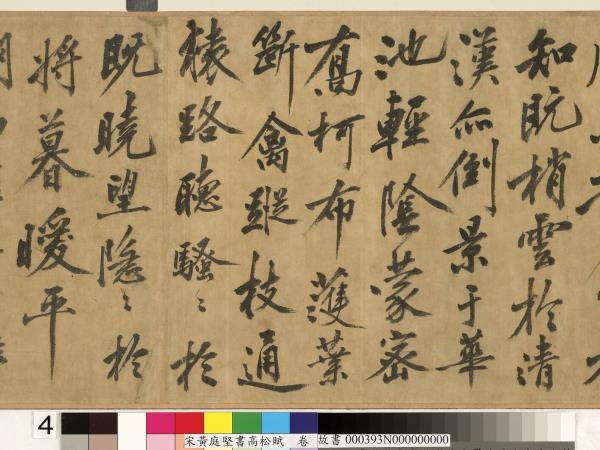 知既梢雲於清
漢亦倒景于華
池輕陰蒙密
喬柯布蔓葉
斷禽蹤枝通
猿路聽騷〻於
既曉望隱〻於
將暮曖平
4
宋黃庭堅書高松賦 卷 故書 000393N000000000